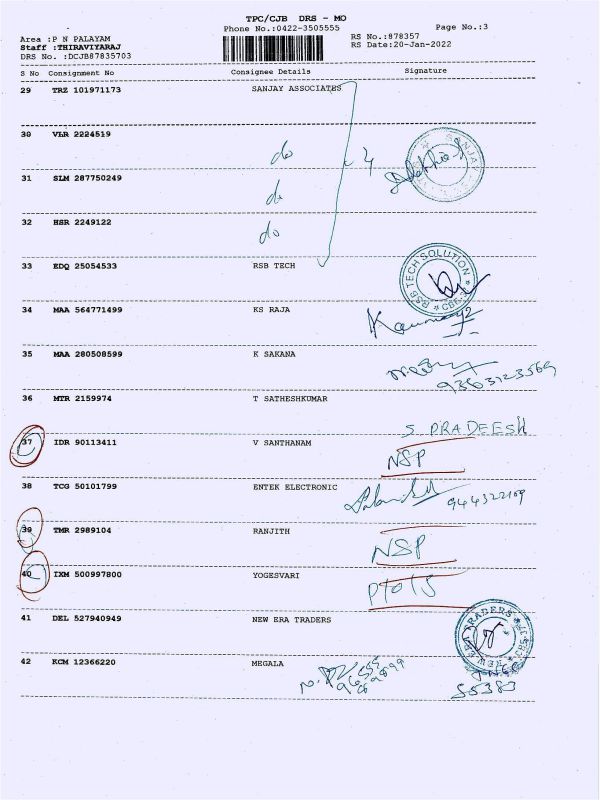 TPC/CJB DRS - MO
Phone No.:0422-3505555
Page No.:3
Area :P N PALAYAM
RS No.:878357
Staff :THIRAVIYARAJ
RS Date:20-Jan-2022
DRS No. :DCJB87835703
S No Consignment No Consignee Details Signature
29 TRZ 101971173 SANJAY ASSOCIATES
30 VLR 2224519 do
SANJAY
31 SLM 287750249 do
32 HSR 2249122 do
33 EDQ 25054533 RSB TECH
RSB TECH SOLUTION
34 MAA 564771499 KS RAJA
35 MAA 280508599 K SAKANA
9363123569
36 MTR 2159974 T SATHESHKUMAR
S PRADEESH
37 IDR 90113411 V SANTHANAM
NSP
38 TCG 50101799 ENTEK ELECTRONIC
39 TMR 2989104 RANJITH
NSP
40 IXM 500997800 YOGESVARI
41 DEL 527940949 NEW ERA TRADERS
NEW ERA TRADERS
42 KCM 12366220 MEGALA